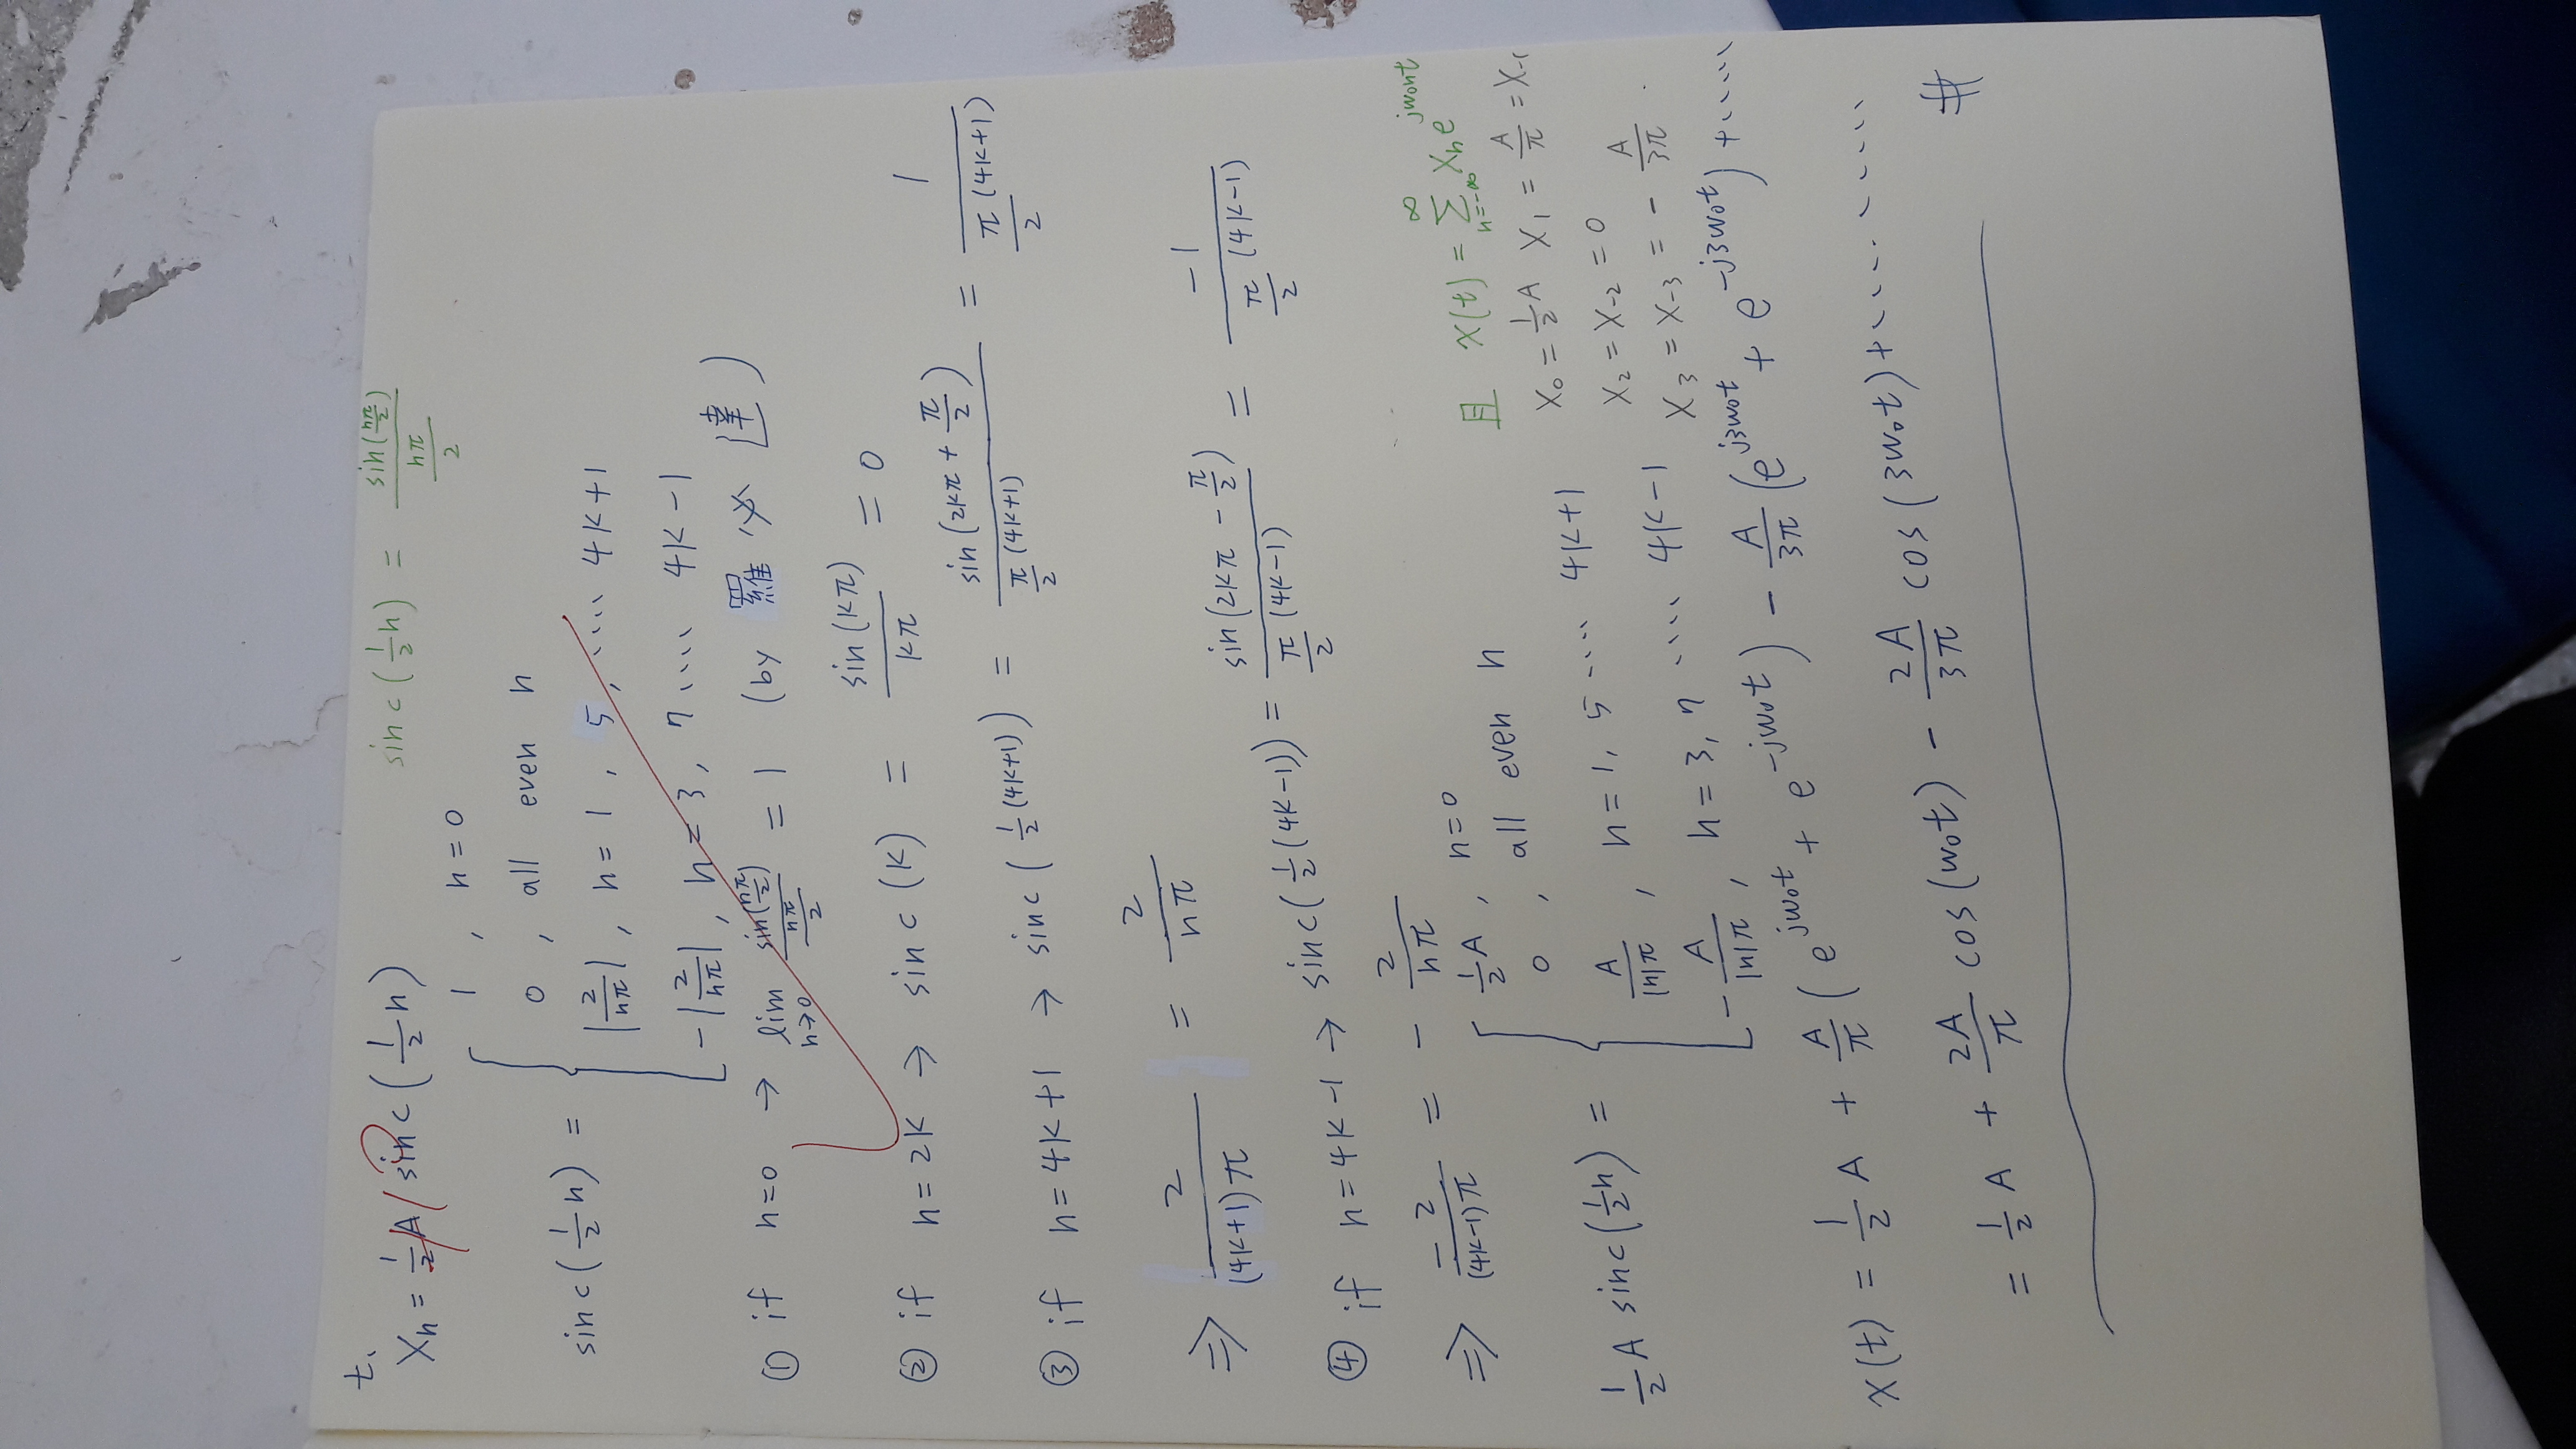 t.
Xn = 1/2 A sinc(1/2 n)
sinc(1/2 n) = sin(nπ/2) / (nπ/2)
sinc(1/2 n) = { 1 , n=0
0 , all even n
|2/nπ| , n = 1 , 5, .... 4k+1
-|2/nπ| , n = 3, 7 .... 4k-1
① if n=0 → lim n→0 sin(nπ/2) / (nπ/2) = 1 (by 羅必達)
② if n=2k → sinc(k) = sin(kπ) / kπ = 0
③ if n=4k+1 → sinc(1/2(4k+1)) = sin(2kπ + π/2) / (π/2 (4k+1)) = 1 / (π/2 (4k+1))
⇒ 2/((4k+1)π) = 2/nπ
④ if n=4k-1 → sinc(1/2(4k-1)) = sin(2kπ - π/2) / (π/2 (4k-1)) = -1 / (π/2 (4k-1))
⇒ -2/((4k-1)π) = - 2/nπ
1/2 A sinc(1/2 n) = { 1/2 A , n=0
0 , all even n
A/|n|π , n=1, 5 .... 4k+1
-A/|n|π , n=3, 7 .... 4k-1
且 x(t) = ∑ n=-∞ ∞ Xn e^jw₀nt
X₀ = 1/2 A X₁ = A/π = X₋₁
X₂ = X₋₂ = 0
X₃ = X₋₃ = - A/3π .
x(t) = 1/2 A + A/π (e^jw₀t + e^-jw₀t) - A/3π (e^j3w₀t + e^-j3w₀t) + .....
= 1/2 A + 2A/π cos(w₀t) - 2A/3π cos(3w₀t) + .........
#